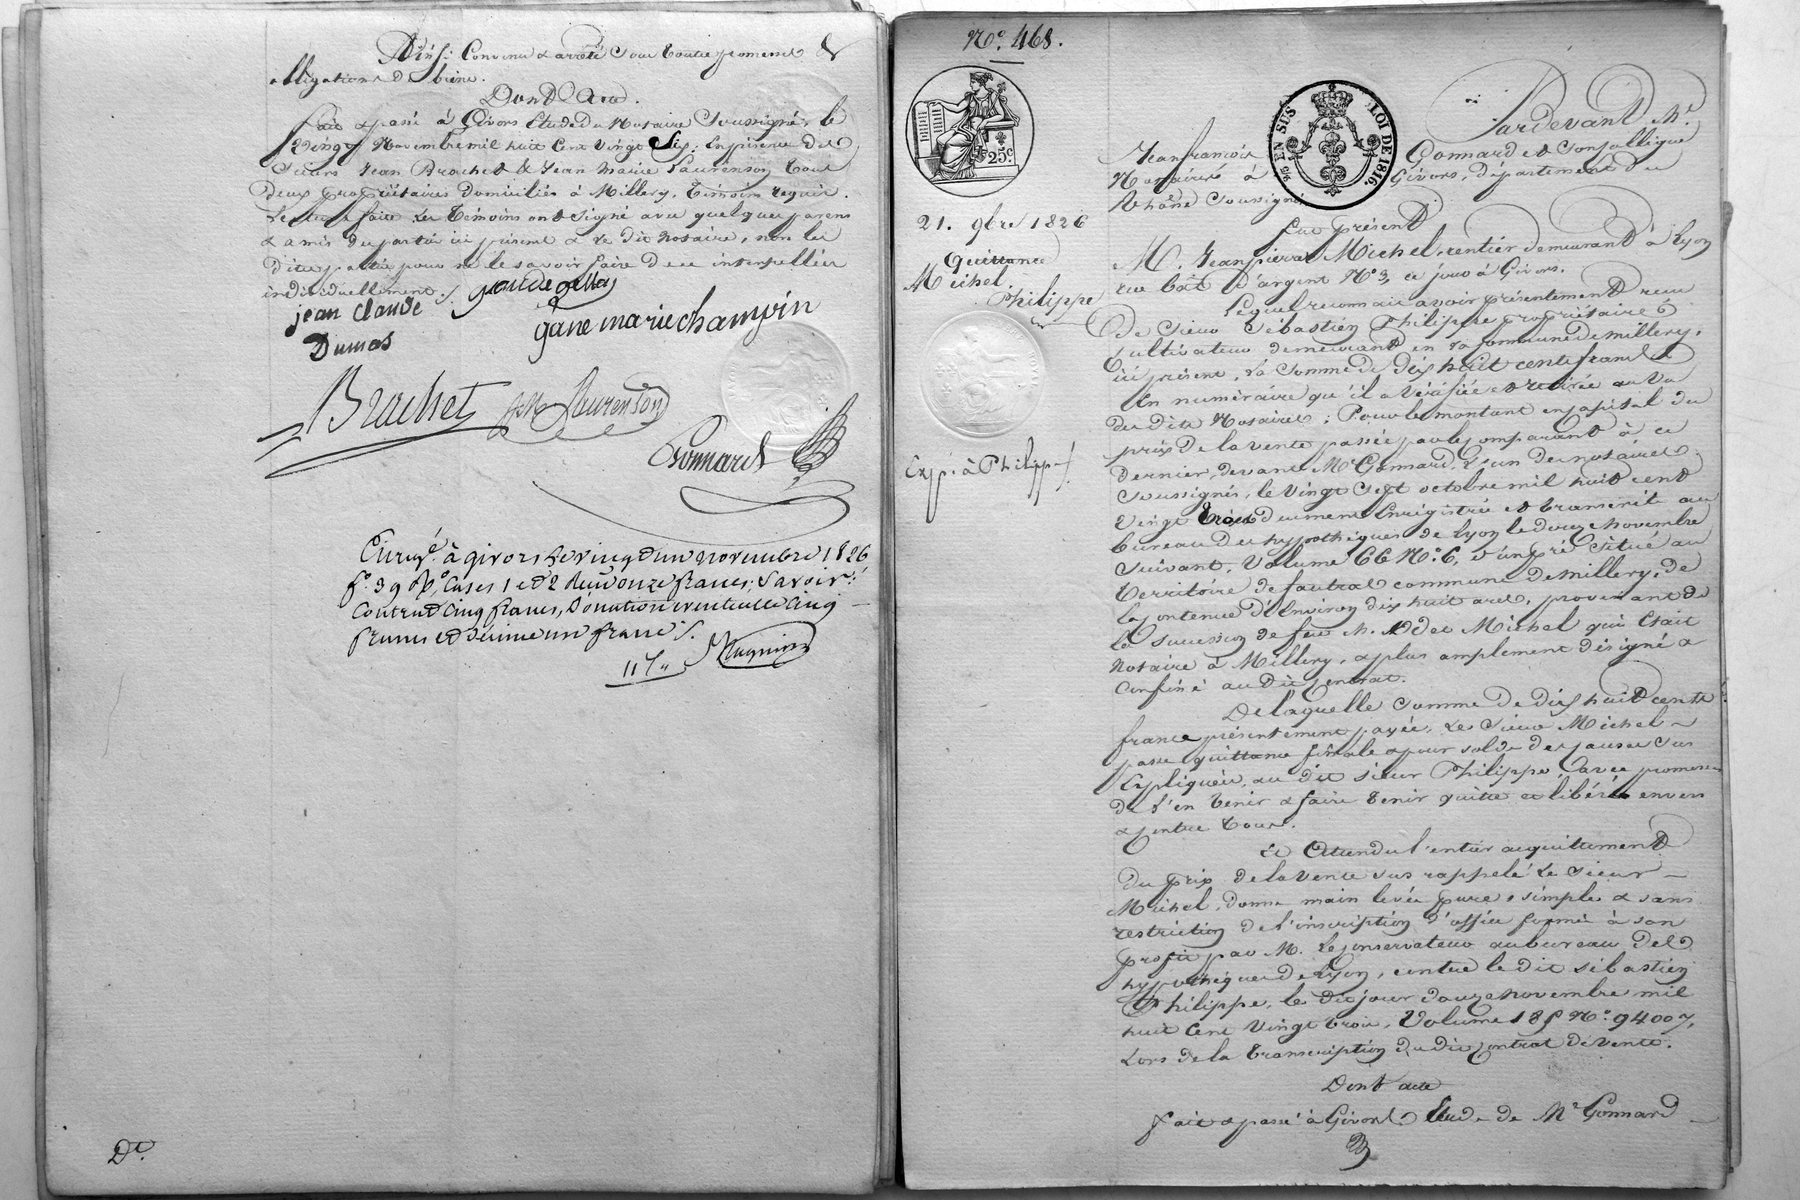 Ainsi Convenu & arrêté Sous Toutes promesses &
obligations de biens.
Dont Acte.
fait & passé à Givors Etude du Notaire Soussigné, le
Vingt Novembre mil huit Cent Vingt Six; En présence des
Sieurs Jean Brachet & Jean Marie Laurenson Tous
deux propriétaires domiciliés à Millery, Témoins requis.
Lecture faite les Témoins ont signé avec quelques parens
& amis des parties ici présens & le dit Notaire, non les
dites parties pour ne le savoir faire de ce interpellées
individuellement ./.
jean claude
Dumas
gane marie champin
Brachet JM Laurenson
Gonnard
Enreg.é à givors le vingt un novembre 1826
f.o 39 Vo, Cases 1 et 2 Reçu onze francs; Savoir:
Contrat Cinq francs, Donation eventuelle Cinq
francs et décime un franc ./.
11 f "
Dt.
No. 468.
25c.
21. 9bre 1826
Quittance
Michel
Philippe
Exp. à Philippe /.
25 EN SUS
LOI DE 1816.
Pardevant Me.
Jean françois Gonnard et Son Collègue
Notaires à Givors, département du
Rhône Soussignés
Fut présent
M. Jean pierre Michel, rentier demeurant à Lyon
rue Bât d'argent No 3, ce jour à Givors.
Lequel reconnait avoir présentement reçu
de Sieur Sébastien Philippe propriétaire
Cultivateur demeurant en la Commune de Millery,
ici présent, la Somme de dix huit cents francs
En numéraire qu'il a Vérifiée et retirée au Vu
des dits Notaires; Pour le montant en Capital du
prix de la Vente passée par le Comparant à ce
dernier, devant Me Gonnard, L'un des notaires
Soussignés, le Vingt Sept octobre mil huit cent
Vingt Trois duement Enregistrée et transcrite au
bureau des hypothèques de Lyon le douze novembre
Suivant, Volume 66 No. 6, d'un pré Situé au
Territoire de fautral commune de Millery, de
la Contenue d'Environ dix huit ares, provenant de
la Succession de feu M. Michel qui Etait
Notaire à Millery, & plus amplement désigné &
Confiné au dit Contrat.
De laquelle Somme de dix huit cents
francs présentement payée, Le Sieur Michel
passe quittance finale & pour solde des causes sus
Expliquées, au dit Sieur Philippe, avec promesse
de l'en Tenir & faire Tenir quitte et libéré envers
& contre Tous.
Et Attendu l'entier acquittement
du prix de la Vente sus rappelé Le Sieur
Michel, donne main levée pure, simple & sans
restriction de l'inscription d'office formée à son
profit par M. Le Conservateur au bureau des
hypothèques de Lyon, contre le dit Sébastien
Philippe, le dit jour douze novembre mil
huit Cent Vingt trois, Volume 185 No. 94007,
Lors de la Transcription du dit Contrat de Vente.
Dont acte
fait & passé à Givors Etude de Me Gonnard